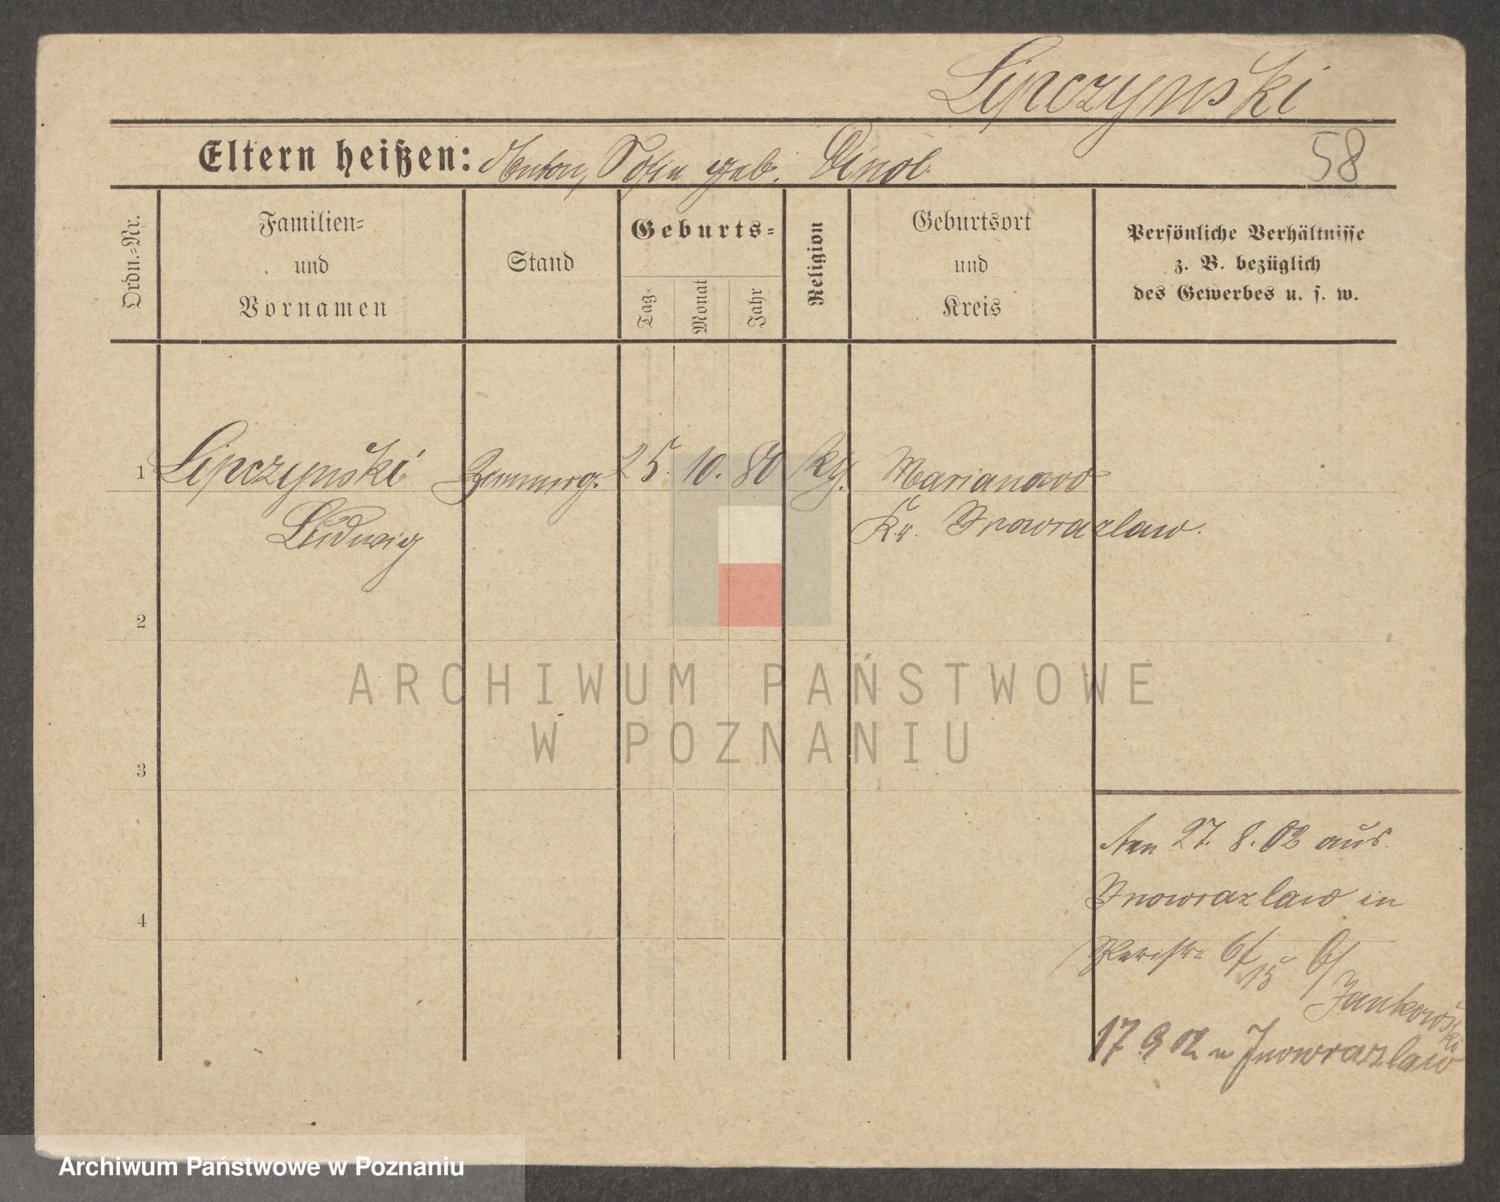 Lipczynski
Eltern heißen: Anton, Sofia geb.
58
Ordn.-Nr.
Familien-
und
Vornamen
Stand
Geburts-
Tag
Monat
Jahr
Religion
Geburtsort
und
Kreis
Persönliche Verhältnisse
z. B. bezüglich
des Gewerbes u. s. w.
1 Lipczynski Zimmerg. 25. 10. 80 kth. Marianowo
Ludwig Kr. Inowrazlaw.
2
ARCHIWUM PAŃSTWOWE
W POZNANIU
3
27. 8. 02 aus
Inowrazlaw in
4
b/
Jankowski
17 9 02 n Inowrazlaw
Archiwum Państwowe w Poznaniu